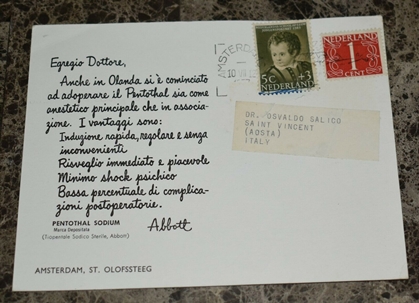 Egregio Dottore,
Anche in Olanda si è cominciato
ad adoperare il Pentothal sia come
anestetico principale che in associa-
zione. I vantaggi sono:
Induzione rapida, regolare e senza
inconvenienti
Risveglio immediato e piacevole
Minimo shock psichico
Bassa percentuale di complica-
zioni postoperatorie.
PENTOTHAL SODIUM
Marca Depositata
(Tiopentale Sodico Sterile, Abbott)
Abbott
AMSTERDAM, ST. OLOFSSTEEG
AMSTERDAM
5C +3
NEDERLAND
NEDERLAND
1
CENT
DR. OSVALDO SALICO
SAINT VINCENT
(AOSTA)
ITALY